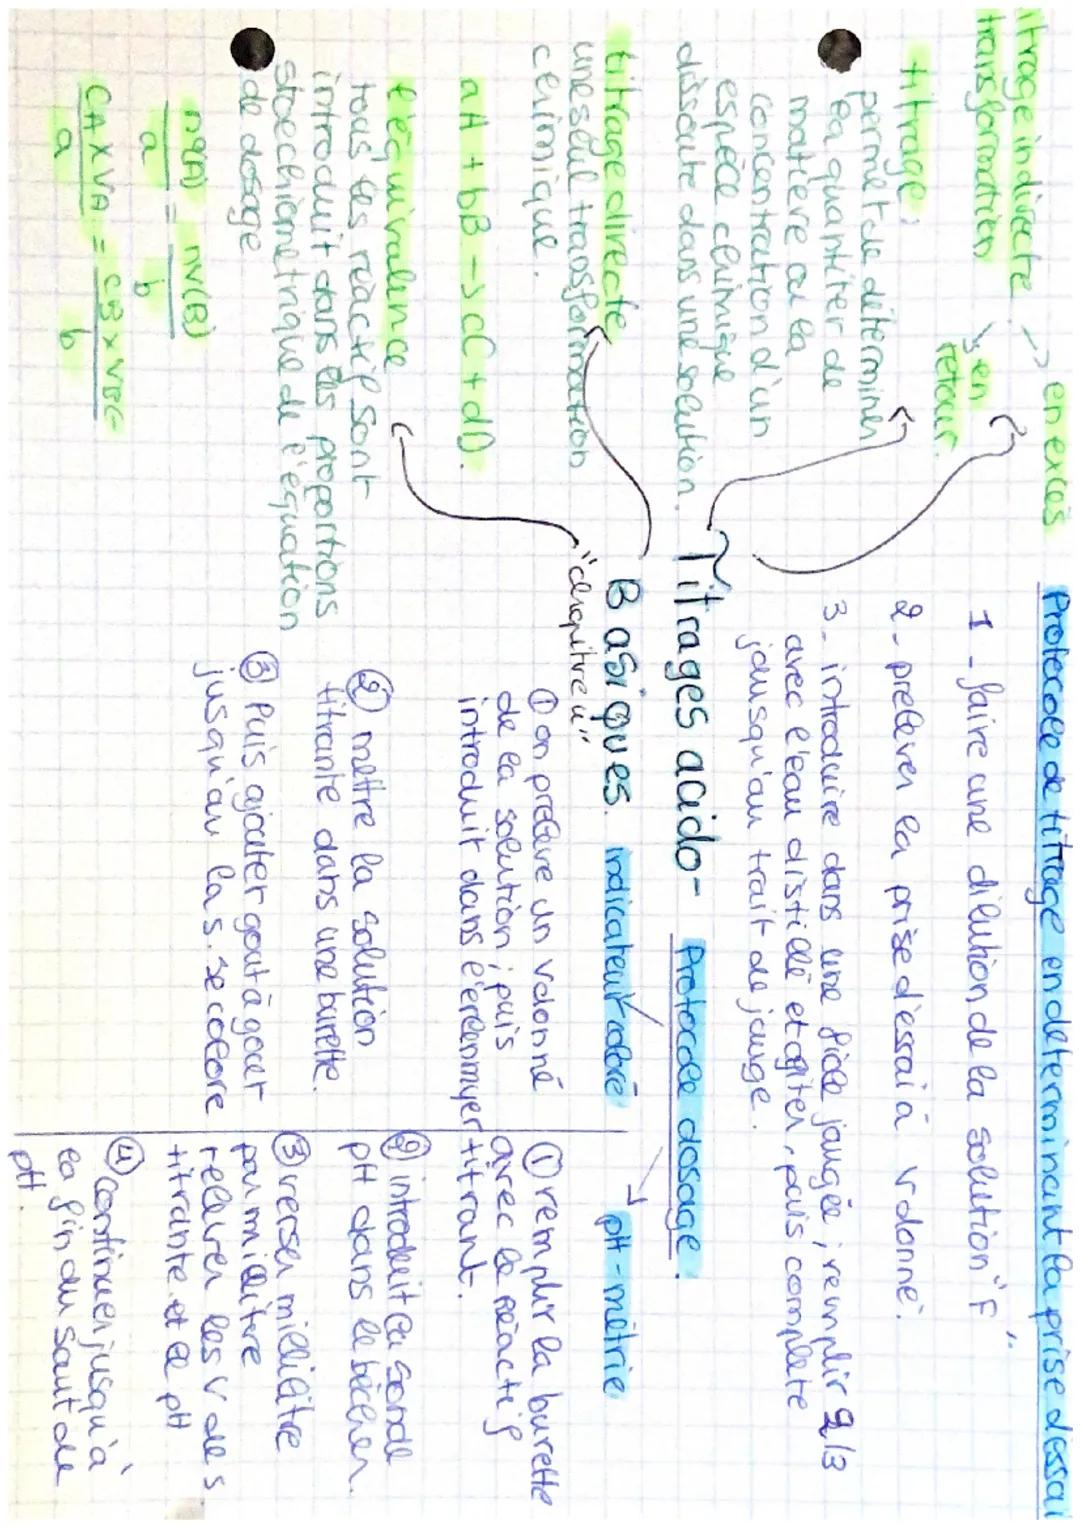 titrage indirecte -> en excès
transformation ↳ en
retour.
titrage :
permet de déterminer
la quantiter de
matière ou la
concentration d'un
espèce chimique
dissoute dans une solution.
titrage directe
une seul transformation
chimique.
a A + b B -> c C + d D.
l'équivalence
tous les réactif sont
introduit dans les proportions
stoechiométrique de l'équation
de dosage
n0(A) = nv(B)
a b
CA x VA = CB x VBE
a b
Titrages acido-
Basiques.
Protocole de titrage en determinant la prise d'essai
1 - faire une dilution de la solution "F".
2 - prelever la prise d'essai à v donné.
3 - introduire dans une fiole jaugée ; remplir 2/3
avec l'eau distillé et agiter, puis complete
jousqu'au trait de jauge.
Protocole dosage.
indicateur coloré
① on prélève un v donné
de la solution ; puis
introduit dans l'erlenmyer
② mettre la solution
titrante dans une burette.
③ Puis ajouter goutà gout
jusqu'au la s. se colore
pH - métrie
① remplir la burette
avec le réactif
titrant.
② introduit la sonde
pH dans le bécher.
③ verser millilitre
par millitere
relever les v de s
titrante et le pH
④ continuer jusqu'à
la fin du saut de
pH